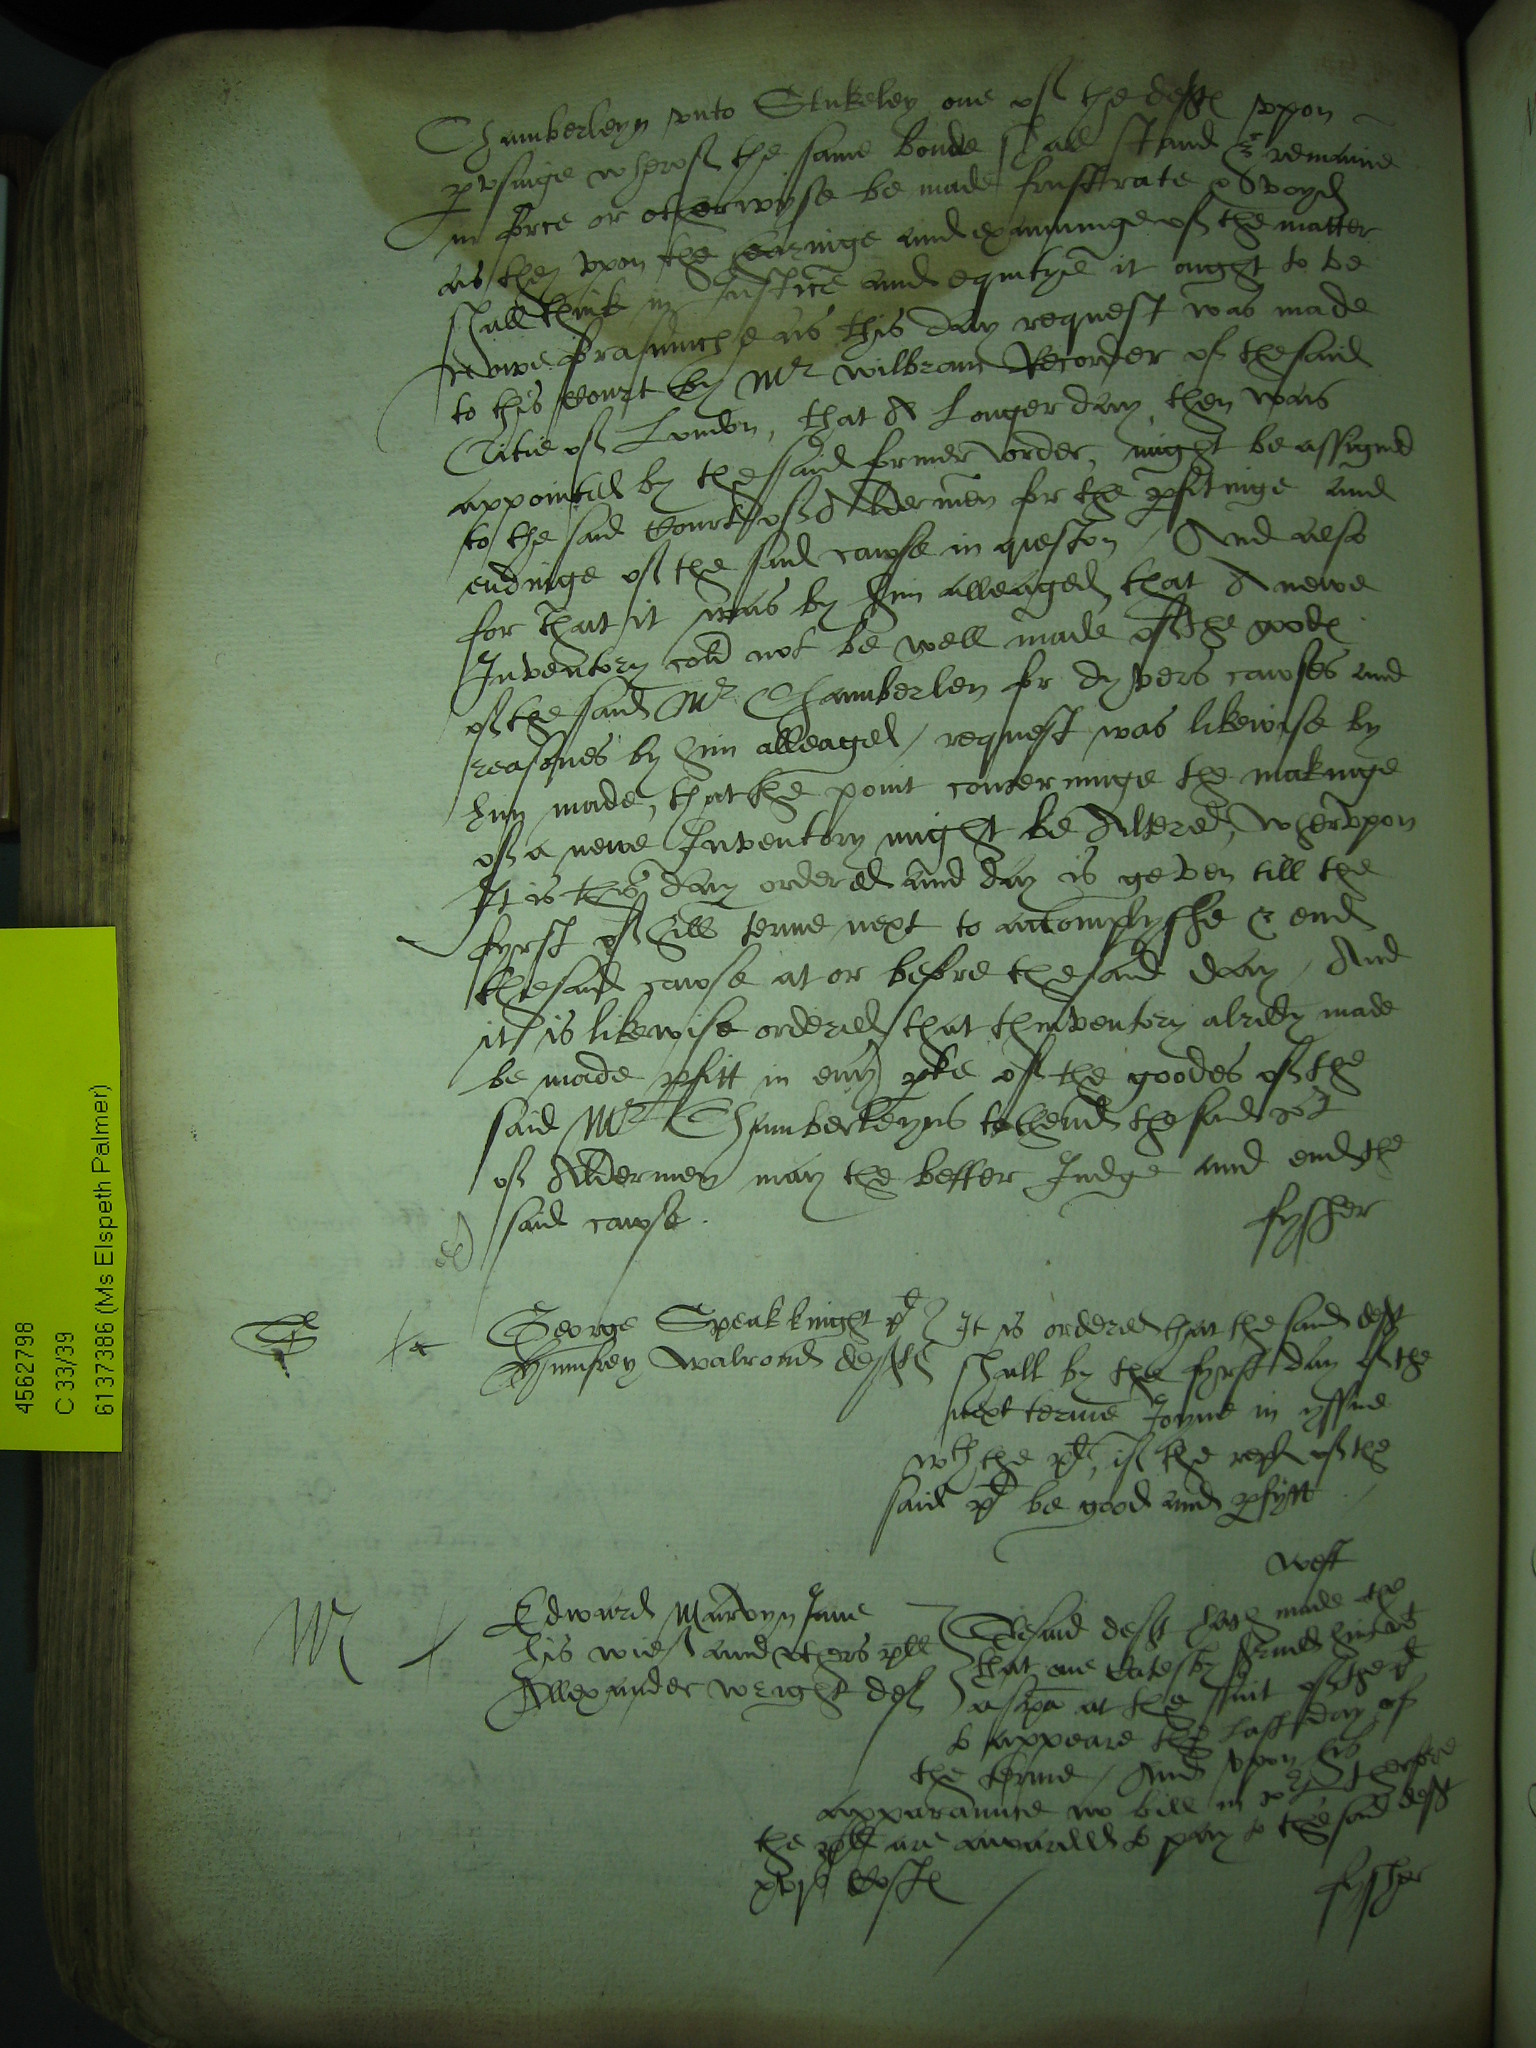 Chamberleyn vnto Stukeley one of the deftes vpon
pvsinge wherof the same bonde shall stand & remaine
in force or otherwyse be made frustrate & voyd
as they vpon the hearinge and examininge of the matter
shall think in Justice and equitye it ought to be
Nowe forasmuche as this day request was made
to this Court by Mr Wilbram Recorder of the said
Citie of London, that A Longer day then was
appointed by the said former order, might be assigned
to the said Court of Aldermen for the pfitinge and
endinge of the said cawse in question / And also
for that it was by him alleaged that A newe
Inventory cold not be well made of the goodes
of the said Mr Chamberlen for dyvers cawses and
reasones by him alleaged / request was likewise by
him made, that the point concerninge the makinge
of a newe Inventory might be Altered, Wherevpon
It is this day ordered and day is geven till the
fyrst of Hill terme next to accomplyshe & end
the said cawse at or before the said day / And
it is likewise ordered that thinventory alredy made
be made pfitt in euy pte of the goodes of the
said Mr Chamberleyns to thend the said cot
of Aldermen may the better Judge and end the
said cawse.
fysher
George Speak knight pl It is ordered that the said deft
Humfrey Walrond deft shall by the fyrst day of the
next terme Joyne in yssue
wth the pl, if the repl of the
said pl be good and pfytt
West
M
Edward Marvyn Jane
his wief and others pll
Allexander Wright def
The said deft hath made oth
that one Catesby served him wt
a spa at the suit of the pl
to appeare the last day of
the terme / And vpon his
apparaunce no bill in cort Therfore
the pll are awarded to pay to the said deft
Costes
fysher
4562798
C 33/39
6137386 (Ms Elspeth Palmer)